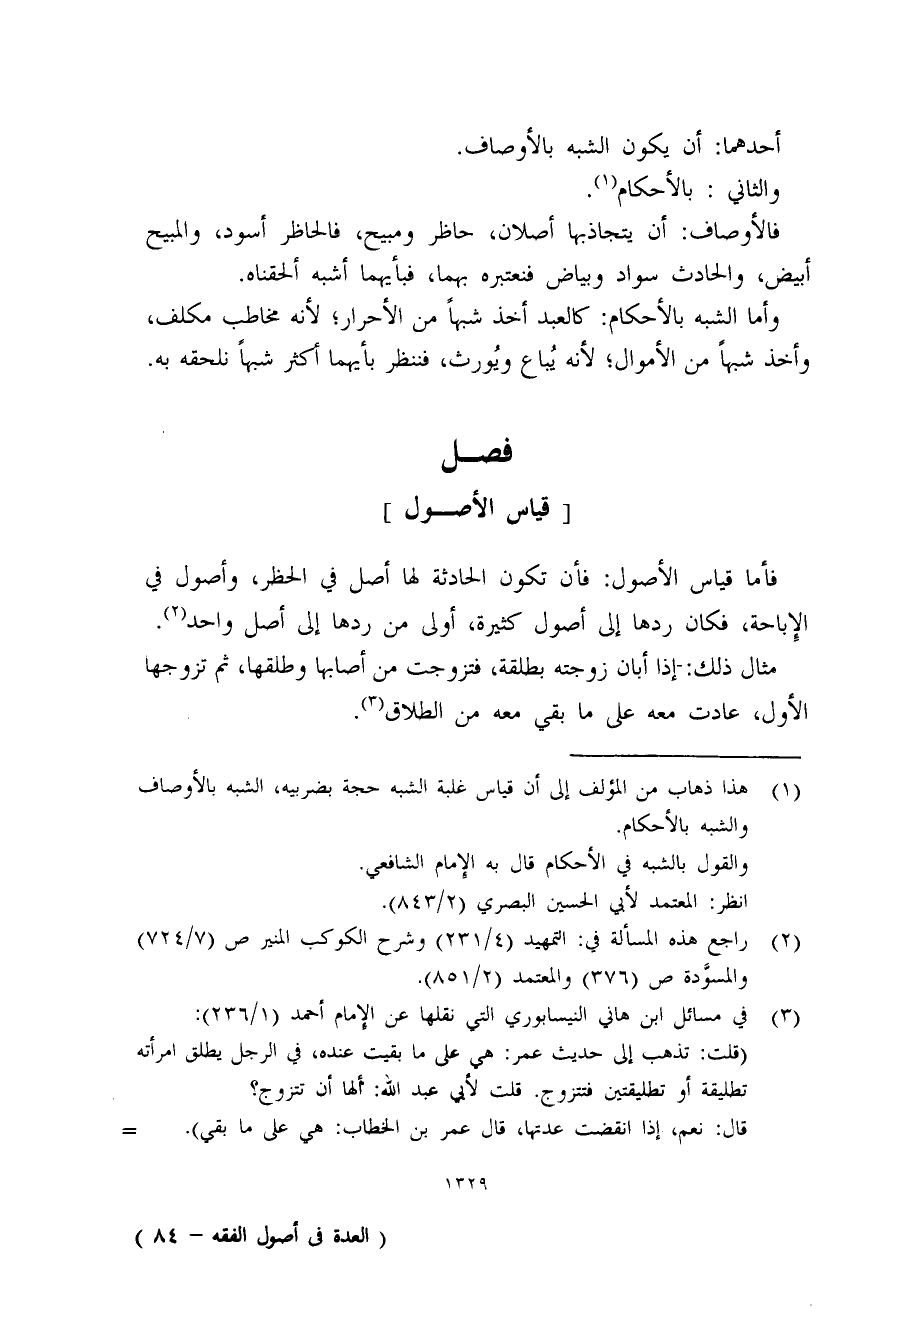 أحدهما: أن يكون الشبه بالأوصاف.
والثاني : بالأحكام(١).
فالأوصاف: أن يتجاذبها أصلان، حاظر ومبيح، فالحاظر أسود، والمبيح
أبيض، والحادث سواد وبياض فنعتبره بهما، فبأيهما أشبه ألحقناه.
وأما الشبه بالأحكام: كالعبد أخذ شبهاً من الأحرار؛ لأنه مخاطب مكلف،
وأخذ شبهاً من الأموال؛ لأنه يُباع ويُورث، فننظر بأيهما أكثر شبهاً نلحقه به.
فصـــل
[ قياس الأصـــول ]
فأما قياس الأصول: فأن تكون الحادثة لها أصل في الحظر، وأصول في
الإباحة، فكان ردها إلى أصول كثيرة، أولى من ردها إلى أصل واحد(٢).
مثال ذلك: إذا أبان زوجته بطلقة، فتزوجت من أصابها وطلقها، ثم تزوجها
الأول، عادت معه على ما بقي معه من الطلاق(٣).
(١) هذا ذهاب من المؤلف إلى أن قياس غلبة الشبه حجة بضربيه، الشبه بالأوصاف
والشبه بالأحكام.
والقول بالشبه في الأحكام قال به الإمام الشافعي.
انظر: المعتمد لأبي الحسين البصري (٨٤٣/٢).
(٢) راجع هذه المسألة في: التمهيد (٢٣١/٤) وشرح الكوكب المنير ص (٧٢٤/٧)
والمسوَّدة ص (٣٧٦) والمعتمد (٨٥١/٢).
(٣) في مسائل ابن هاني النيسابوري التي نقلها عن الإمام أحمد (٢٣٦/١):
(قلت: تذهب إلى حديث عمر: هي على ما بقيت عنده، في الرجل يطلق امرأته
تطليقة أو تطليقتين فتتزوج. قلت لأبي عبد الله: ألها أن تتزوج؟
قال: نعم، إذا انقضت عدتها، قال عمر بن الخطاب: هي على ما بقي). =
١٣٢٩
( العدة في أصول الفقه – ٨٤ )